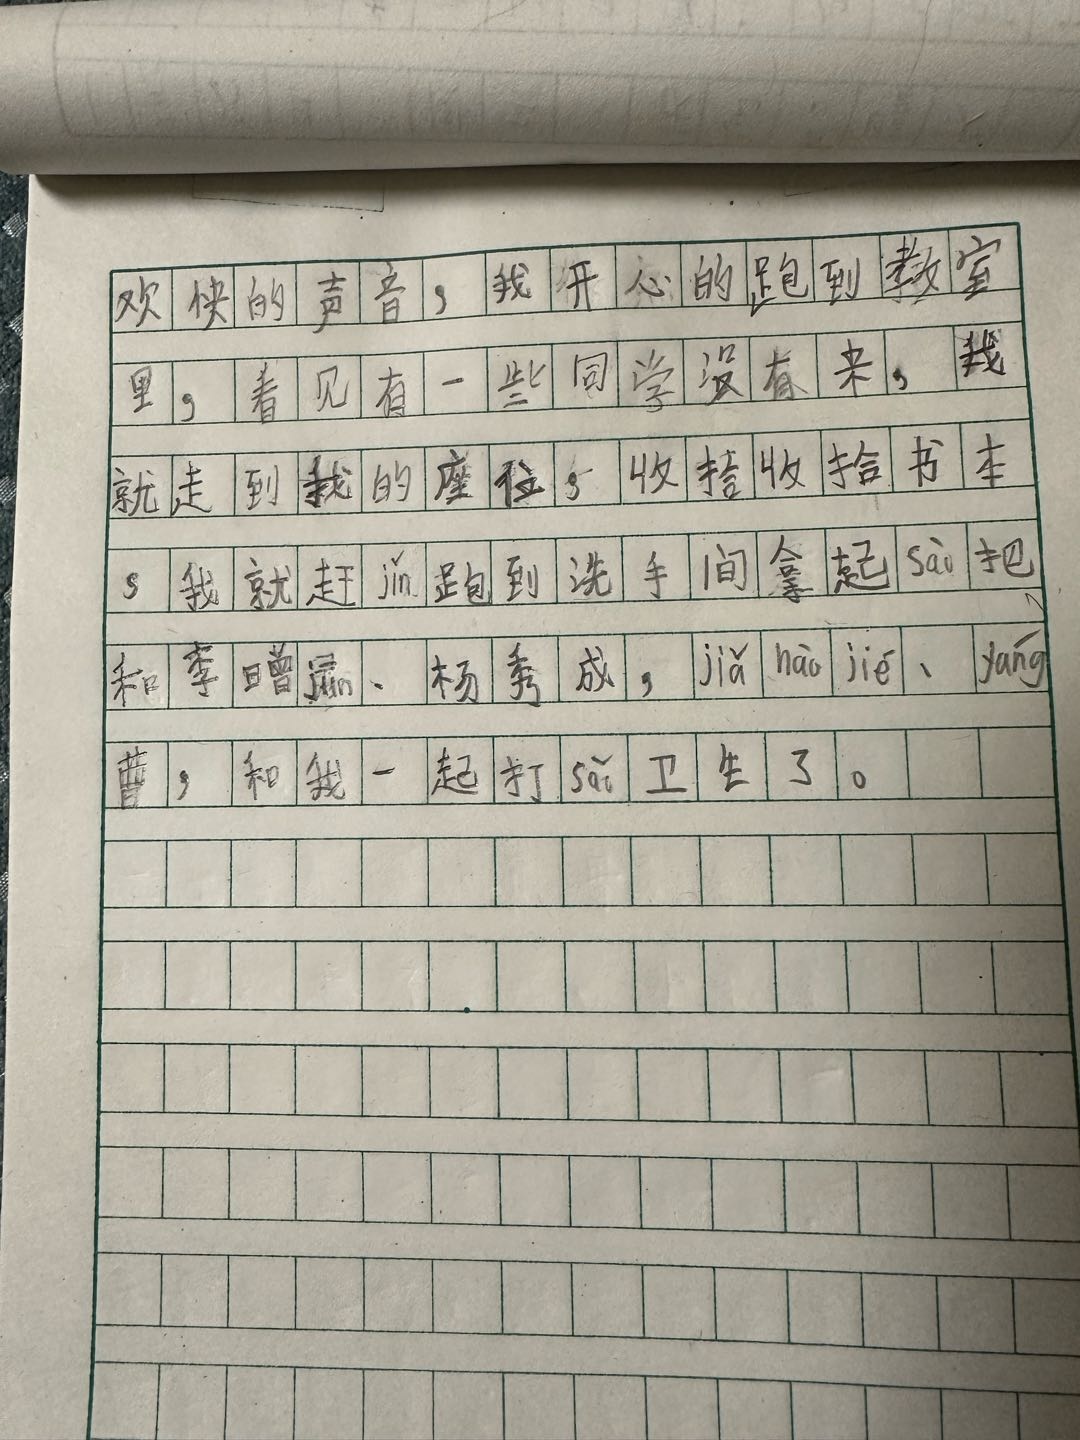 欢快的声音，我开心的跑到教室
里，看见有一些同学没有来，我
就走到我的座位，收拾收拾书本
，我就赶jǐn跑到洗手间拿起sào把
和李曾jùn、杨秀成，jiǎ hào jié、yáng
曹，和我一起打sǎo卫生了。